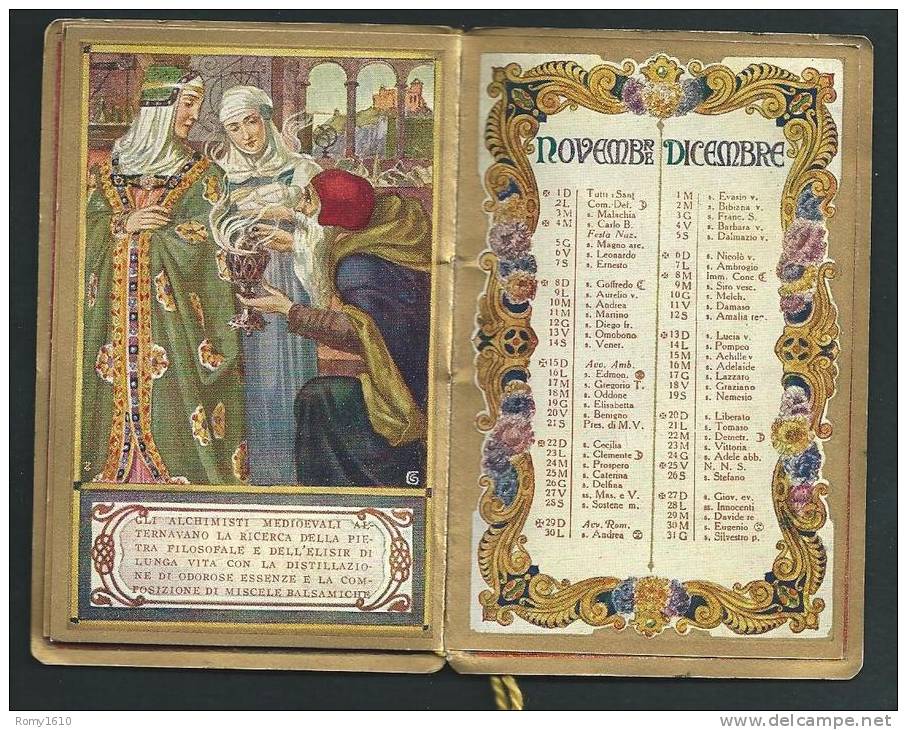 GLI ALCHIMISTI MEDIOEVALI AL-
TERNAVANO LA RICERCA DELLA PIE-
TRA FILOSOFALE E DELL'ELISIR DI
LUNGA VITA CON LA DISTILLAZIO-
NE DI ODOROSE ESSENZE E LA COM-
POSIZIONE DI MISCELE BALSAMICHE
NOVEMBRE
1 D Tutti i Sant
2 L Com. Def.
3 M s. Malachia
4 M s. Carlo B.
Festa Naz.
5 G s. Magno arc.
6 V s. Leonardo
7 S s. Ernesto
8 D s. Goffredo
9 L s. Aurelio v.
10 M s. Andrea
11 M s. Martino
12 G s. Diego fr.
13 V s. Omobono
14 S s. Vener.
15 D Avv. Amb.
16 L s. Edmon.
17 M s. Gregorio T.
18 M s. Oddone
19 G s. Elisabetta
20 V s. Benigno
21 S Pres. di M.V.
22 D s. Cecilia
23 L s. Clemente
24 M s. Prospero
25 M s. Caterina
26 G s. Delfina
27 V ss. Mas. e V.
28 S s. Sostene m.
29 D Avv. Rom.
30 L s. Andrea
DICEMBRE
1 M s. Evasio v.
2 M s. Bibiana v.
3 G s. Franc. S.
4 V s. Barbara v.
5 S s. Dalmazio v.
6 D s. Nicolò v.
7 L s. Ambrogio
8 M Imm. Conc
9 M s. Siro vesc.
10 G s. Melch.
11 V s. Damaso
12 S s. Amalia re
13 D s. Lucia v.
14 L s. Pompeo
15 M s. Achille v
16 M s. Adelaide
17 G s. Lazzaro
18 V s. Graziano
19 S s. Nemesio
20 D s. Liberato
21 L s. Tomaso
22 M s. Demetr.
23 M s. Vittoria
24 G s. Adele abb.
25 V N. N. S.
26 S s. Stefano
27 D s. Giov. ev.
28 L ss. Innocenti
29 M s. Davide re
30 M s. Eugenio
31 G s. Silvestro p.
Romy1610
delcampe.net